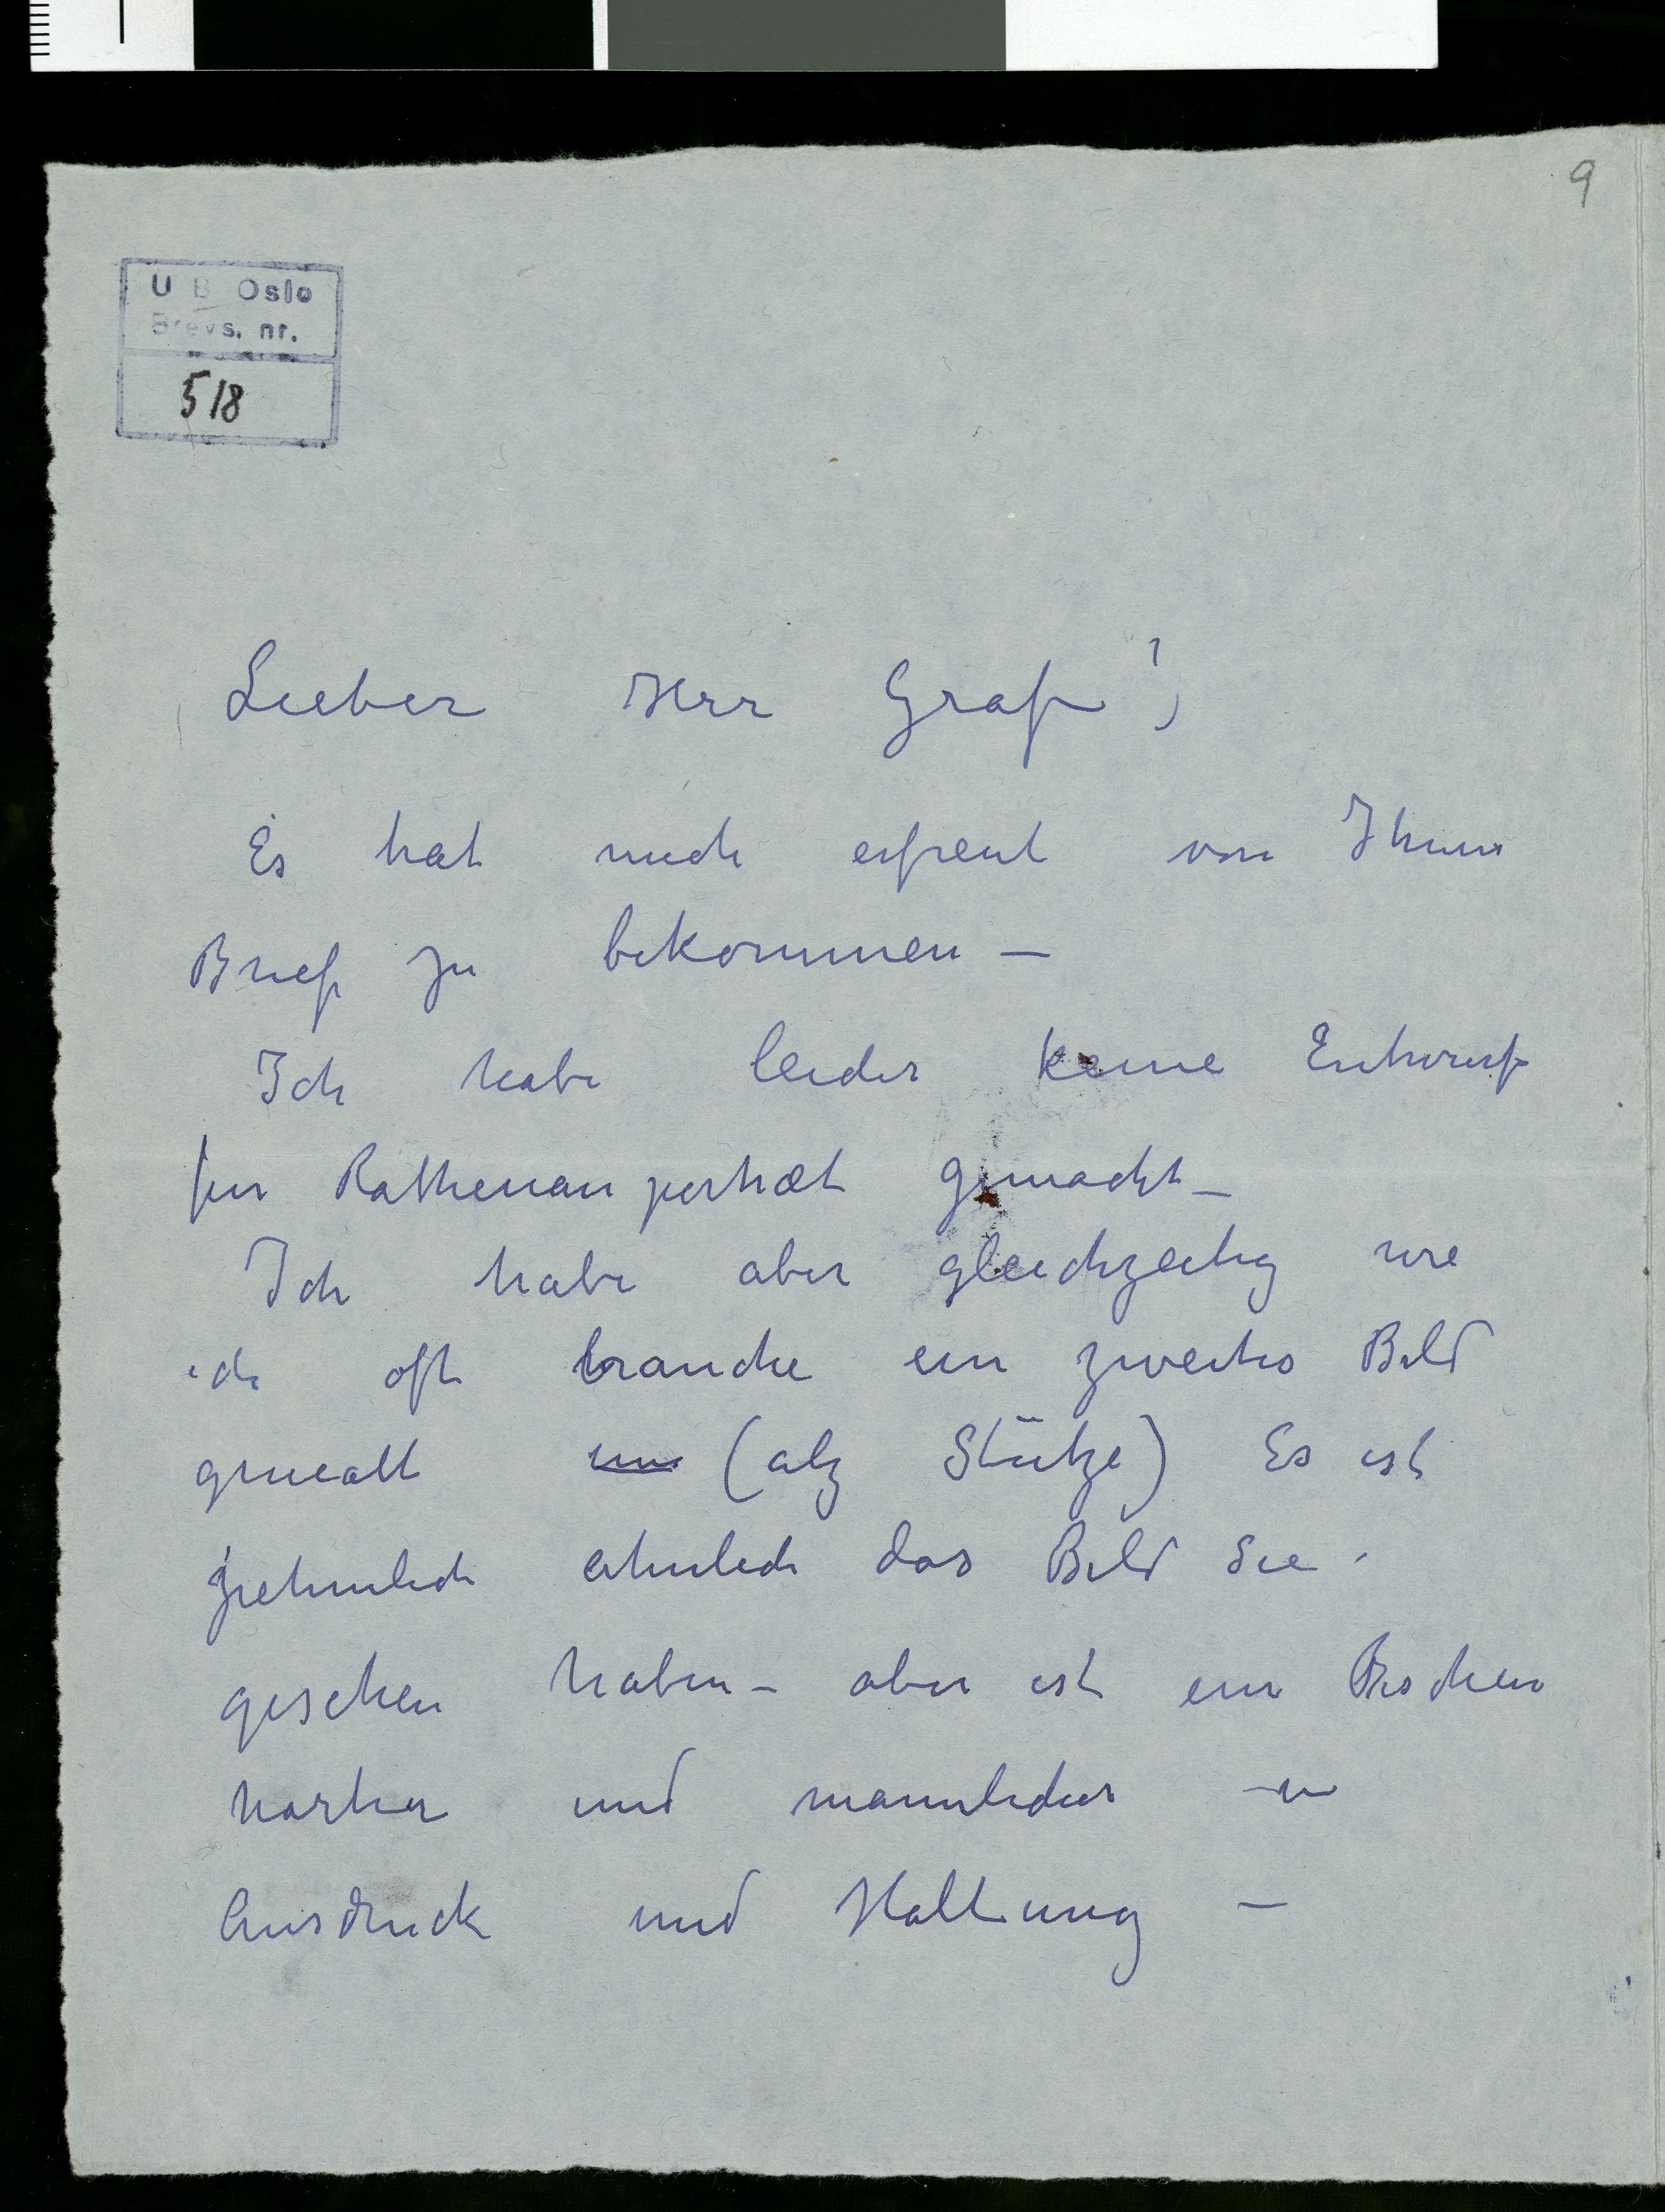 9
U B Oslo
Brevs. nr.
518
Lieber Herr Graf!
Es hat mich erfreut von Ihnen
Brief zu bekommen –
Ich habe leider keine Entwurf
für Rathenauportræt gemacht –
Ich habe aber gleichzeitig wie
ich oft brauche ein zweites Bild
gemalt (alz Stütze) Es ist
ziehmlich æhnlich das Bild Sie
gesehen haben – aber ist ein Bischen
harter und mannlicher – in
Ausdruck und Haltung –